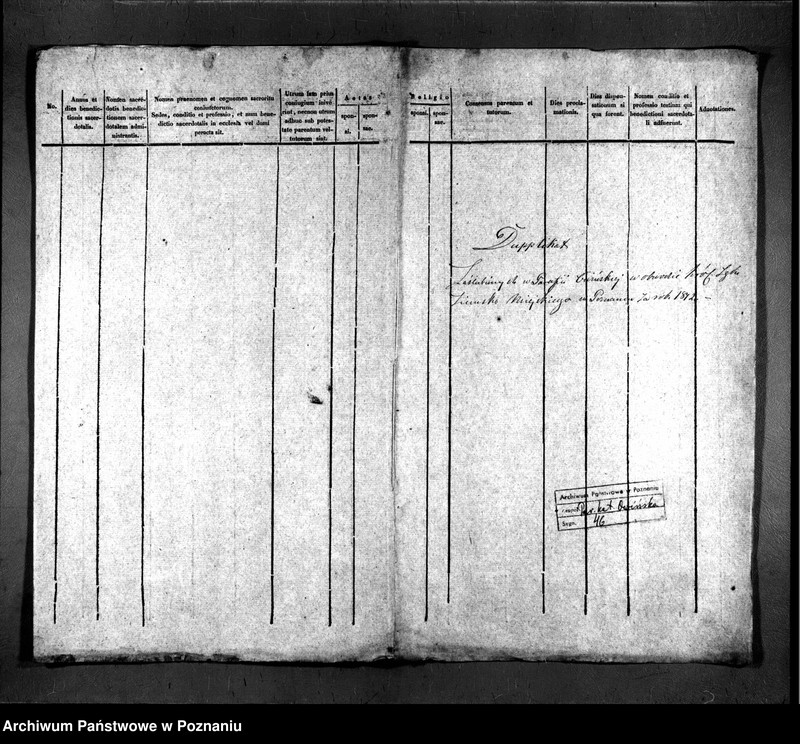 No.
Annus et
dies benedic-
tionis sacer-
dotalis.
Nomen sacer-
dotis benedic-
tionem sacer-
dotalem admi-
nistrantis.
Nomen praenomen et cognomen sacro ritu
conjunctorum.
Sedes, conditio et professio, et num bene-
dictio sacerdotalis in ecclesia vel domi
peracta sit.
Utrum jam prius
conjugium inive-
rint, necnon utrum
adhuc sub potes-
tate parentum vel
tutorum sint.
Aetas
spon-
si.
spon-
sae.
Religio
sponsi.
spon-
sae.
Consensus parentum et
tutorum.
Dies procla-
mationis.
Dies dispen-
sationum si
qua forent.
Nomen conditio et
professio testium qui
benedictioni sacerdota-
li adfuerint.
Adnotationes.
Dupplikat
w Parafii w obwodzie
Miejskiego w Poznaniu za rok
Archiwum Państwowe w Poznaniu
Par. kat. Owińska
Sygn. 46
Archiwum Państwowe w Poznaniu